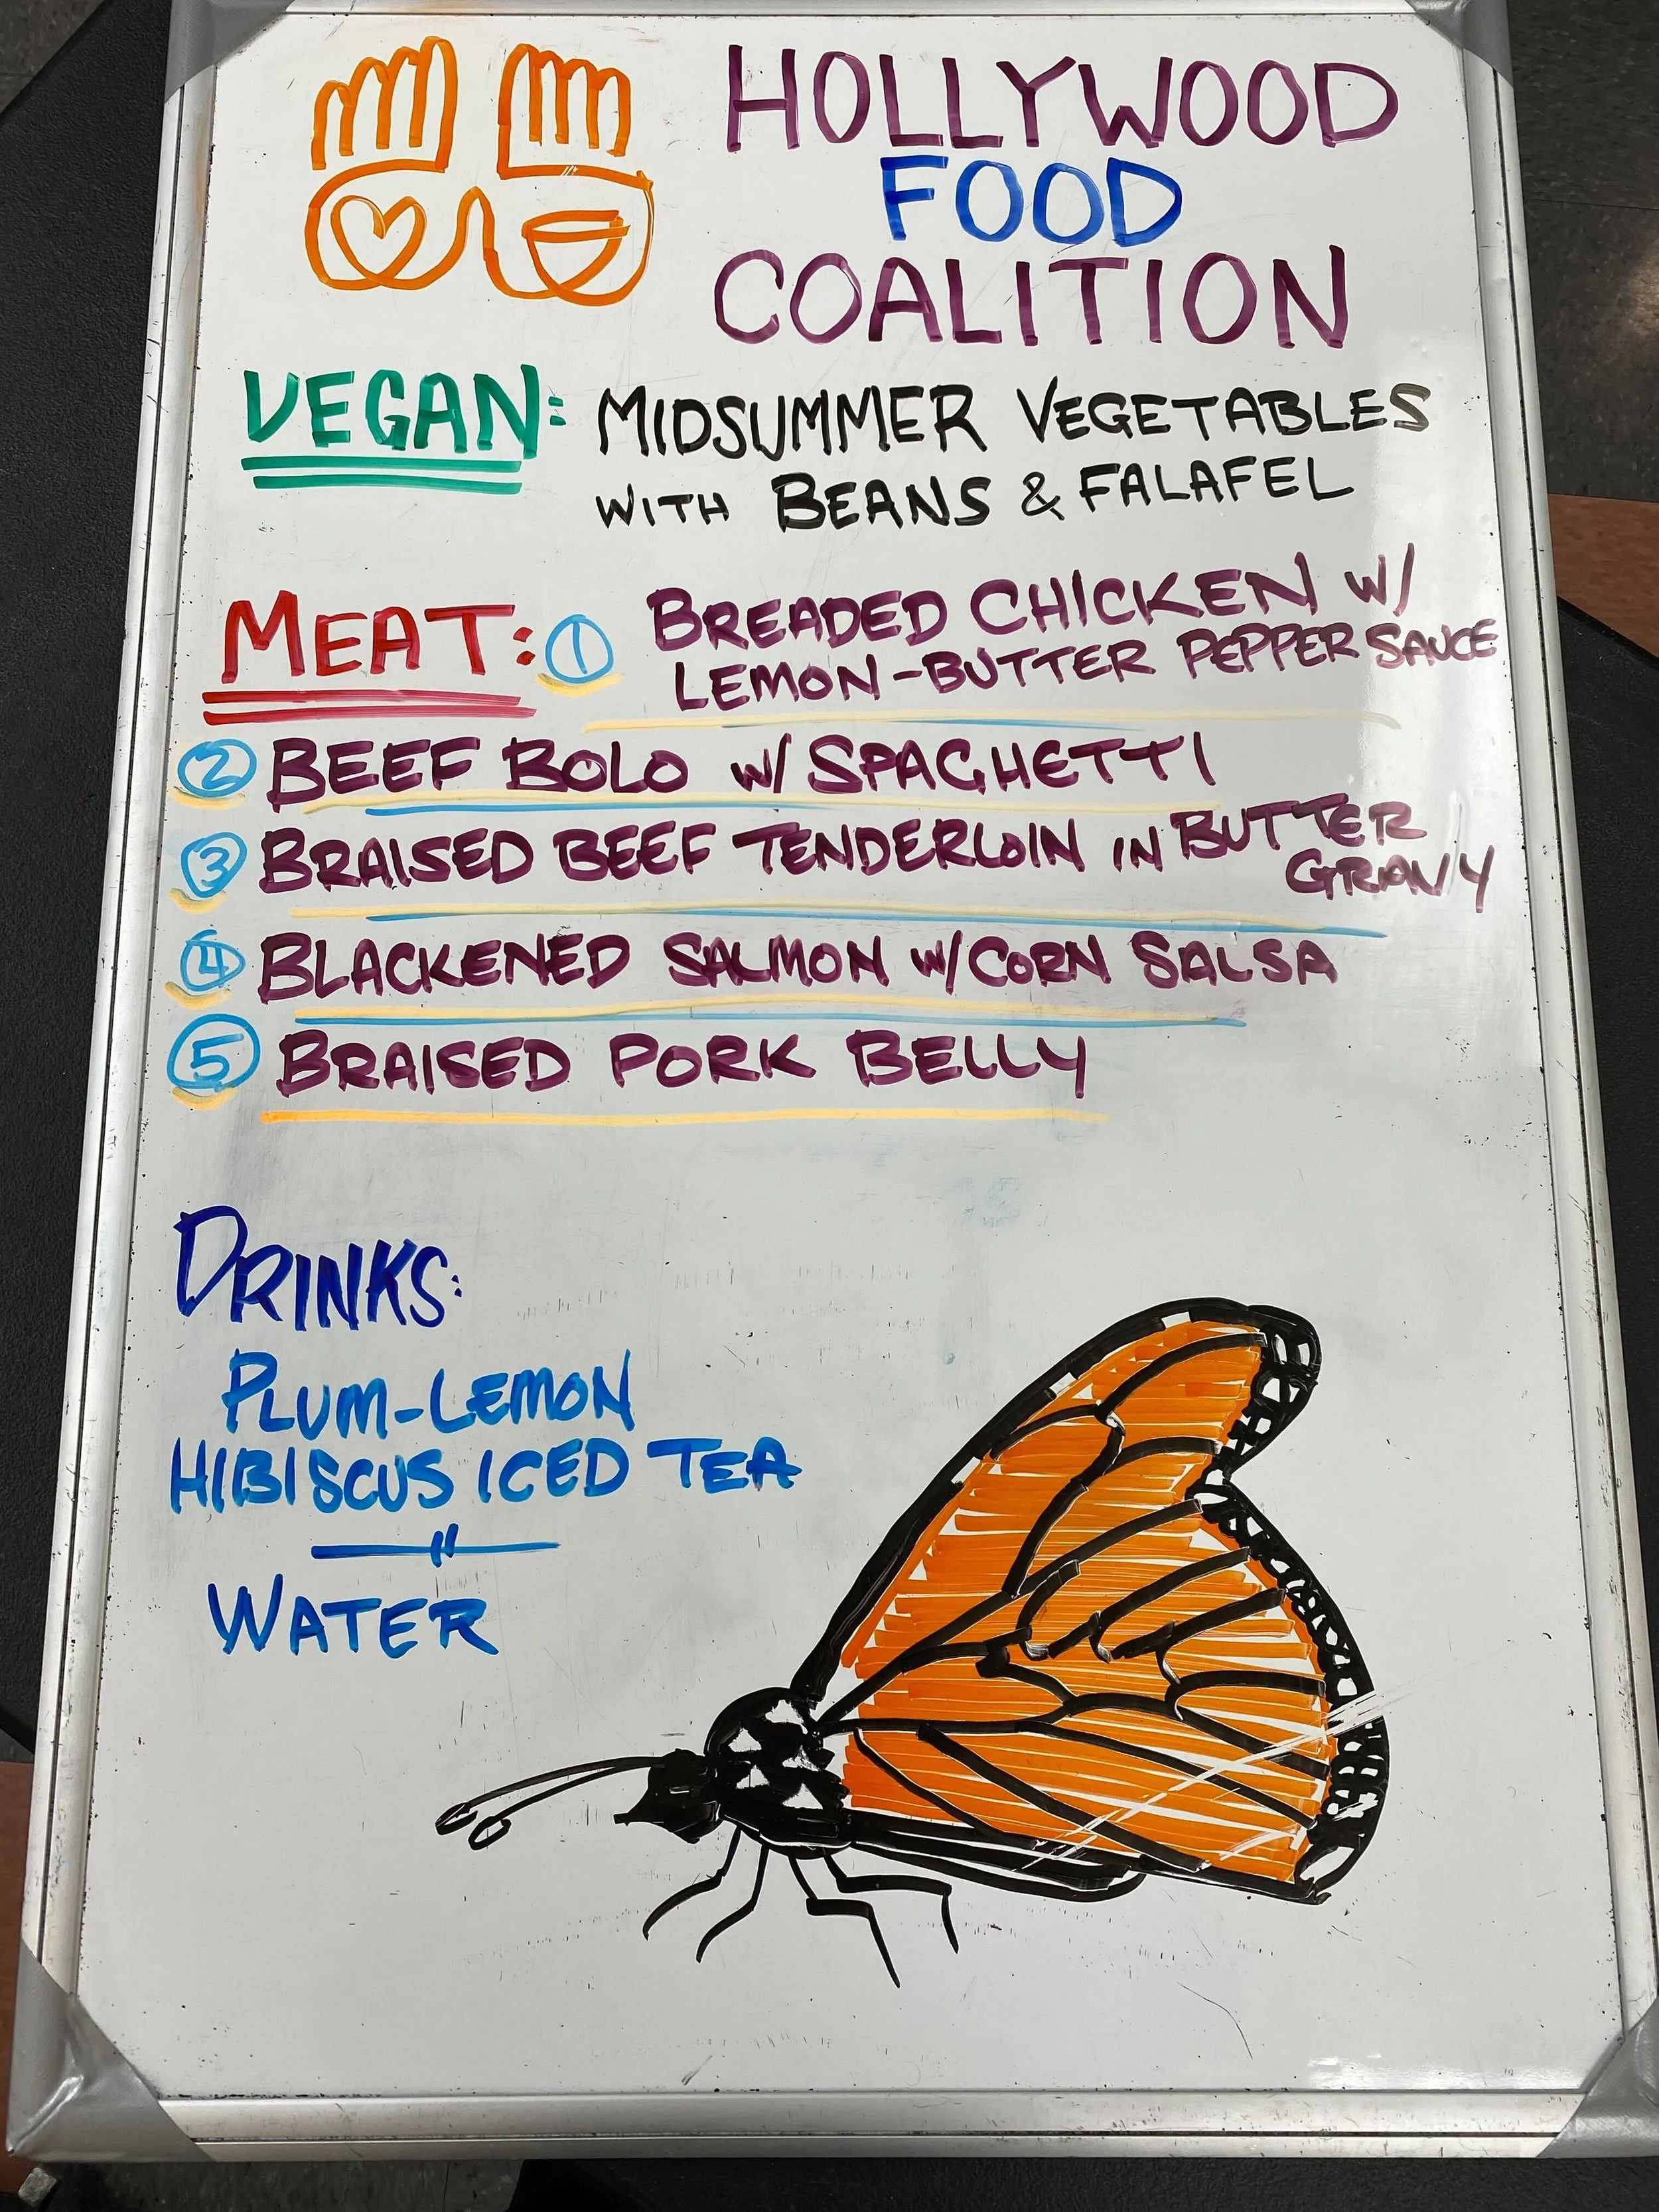 HOLLYWOOD
FOOD
COALITION
VEGAN: MIDSUMMER VEGETABLES
WITH BEANS & FALAFEL
MEAT: 1 BREADED CHICKEN W/
LEMON-BUTTER PEPPER SAUCE
2 BEEF BOLO W/ SPAGHETTI
3 BRAISED BEEF TENDERLOIN IN BUTTER
GRAVY
4 BLACKENED SALMON W/ CORN SALSA
5 BRAISED PORK BELLY
DRINKS:
PLUM-LEMON
HIBISCUS ICED TEA
WATER